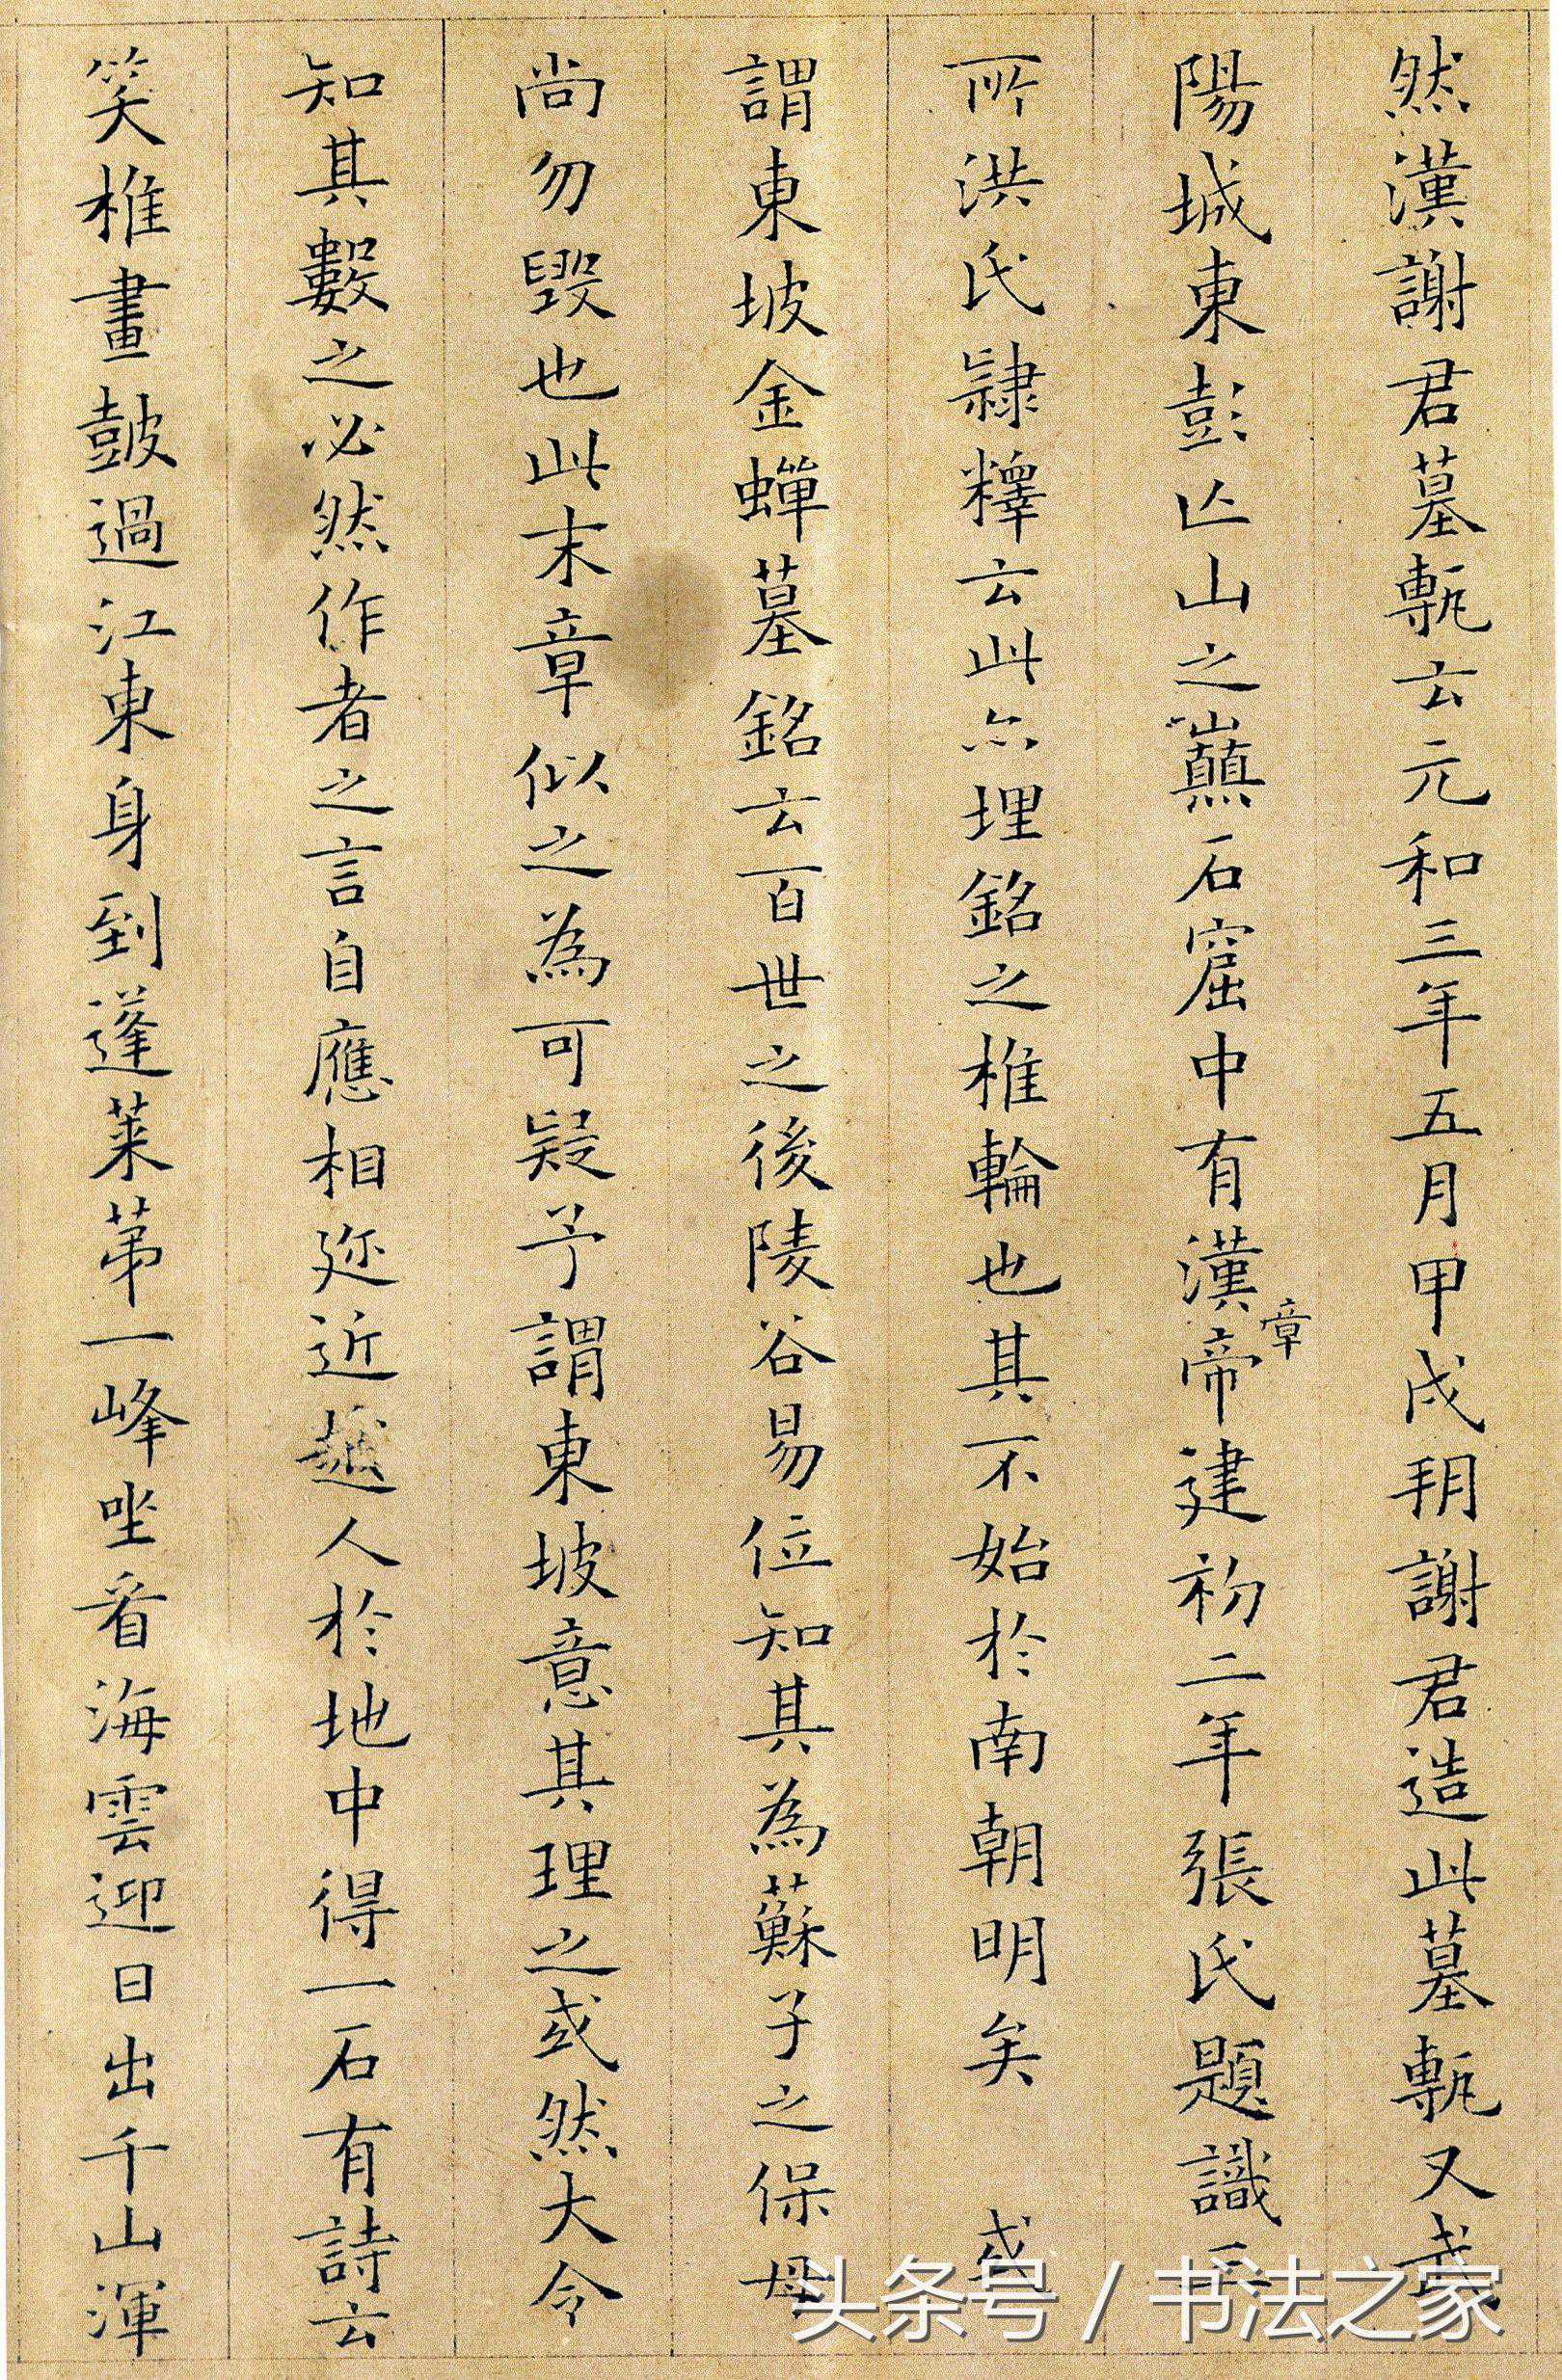 然漢謝君墓甎云元和三年五月甲戌朔謝君造此墓甎又武
陽城東彭亡山之巔石窟中有漢章帝建初二年張氏題識
所洪氏隷釋云此亦埋銘之椎輪也其不始於南朝明矣 或
謂東坡金蟬墓銘云百世之後陵谷易位知其為蘇子之保母
尚勿毀也此末章似之為可疑予謂東坡意其理之或然大令
知其數之必然作者之言自應相迩近越人於地中得一石有詩云
笑椎畫鼓過江東身到蓬萊苐一峰坐看海雲迎日出千山渾
头条号 / 书法之家